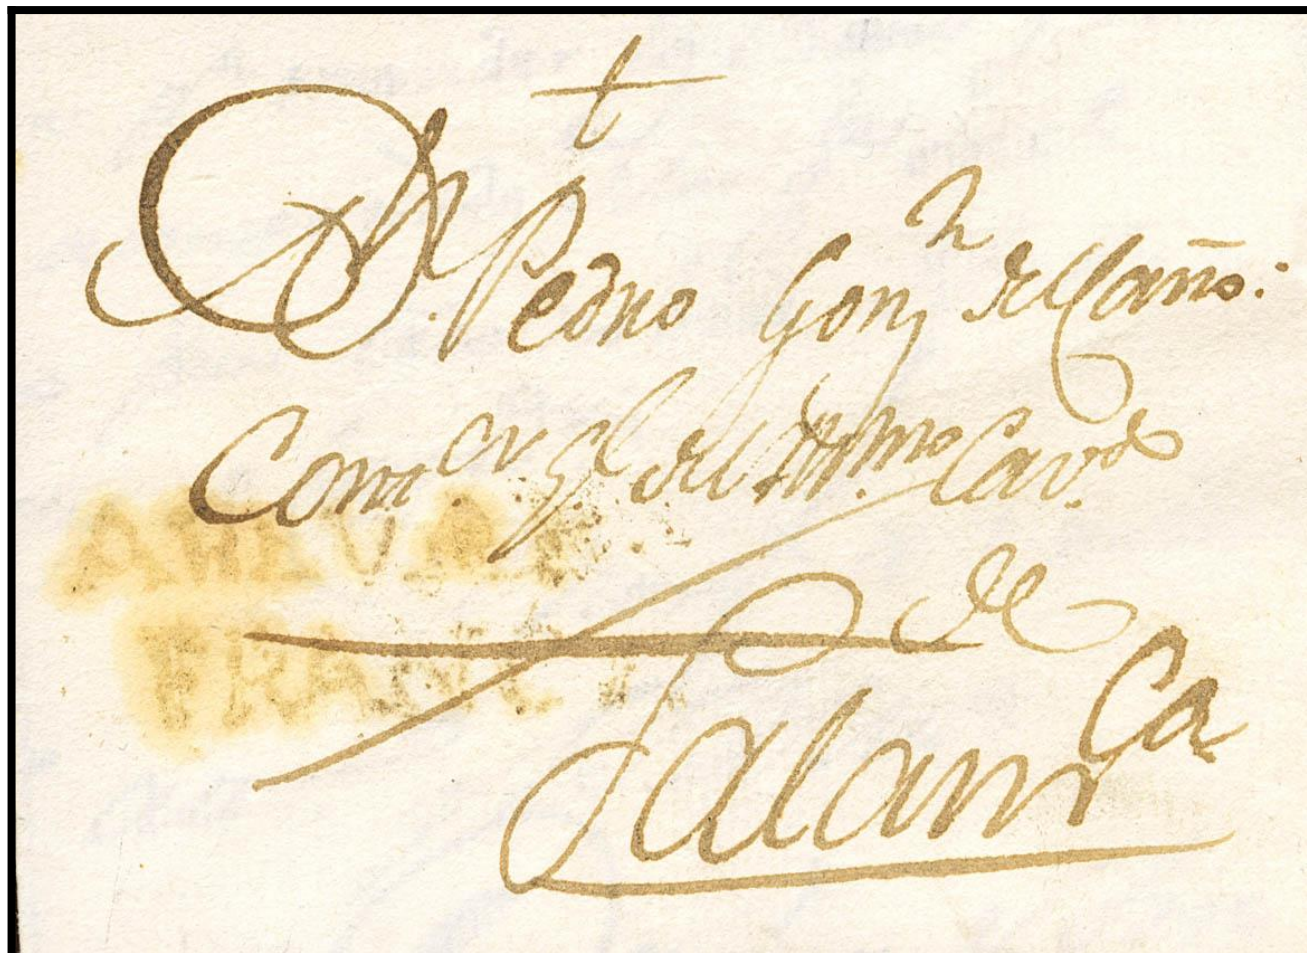 †
Dn. Pedro Gonz del Caño:
Contor Gl del Illmo Cavdo
AREVALO
FRANCA
de
Salamca